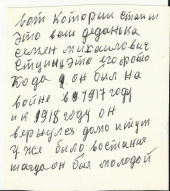 вот которий стоит
это ваш деданька
семен михаилович
это фото
кода он был на
войне в 1917 году
и к 1918 году он
вернулся домо и тут
уже было востание
тагда он был молодой